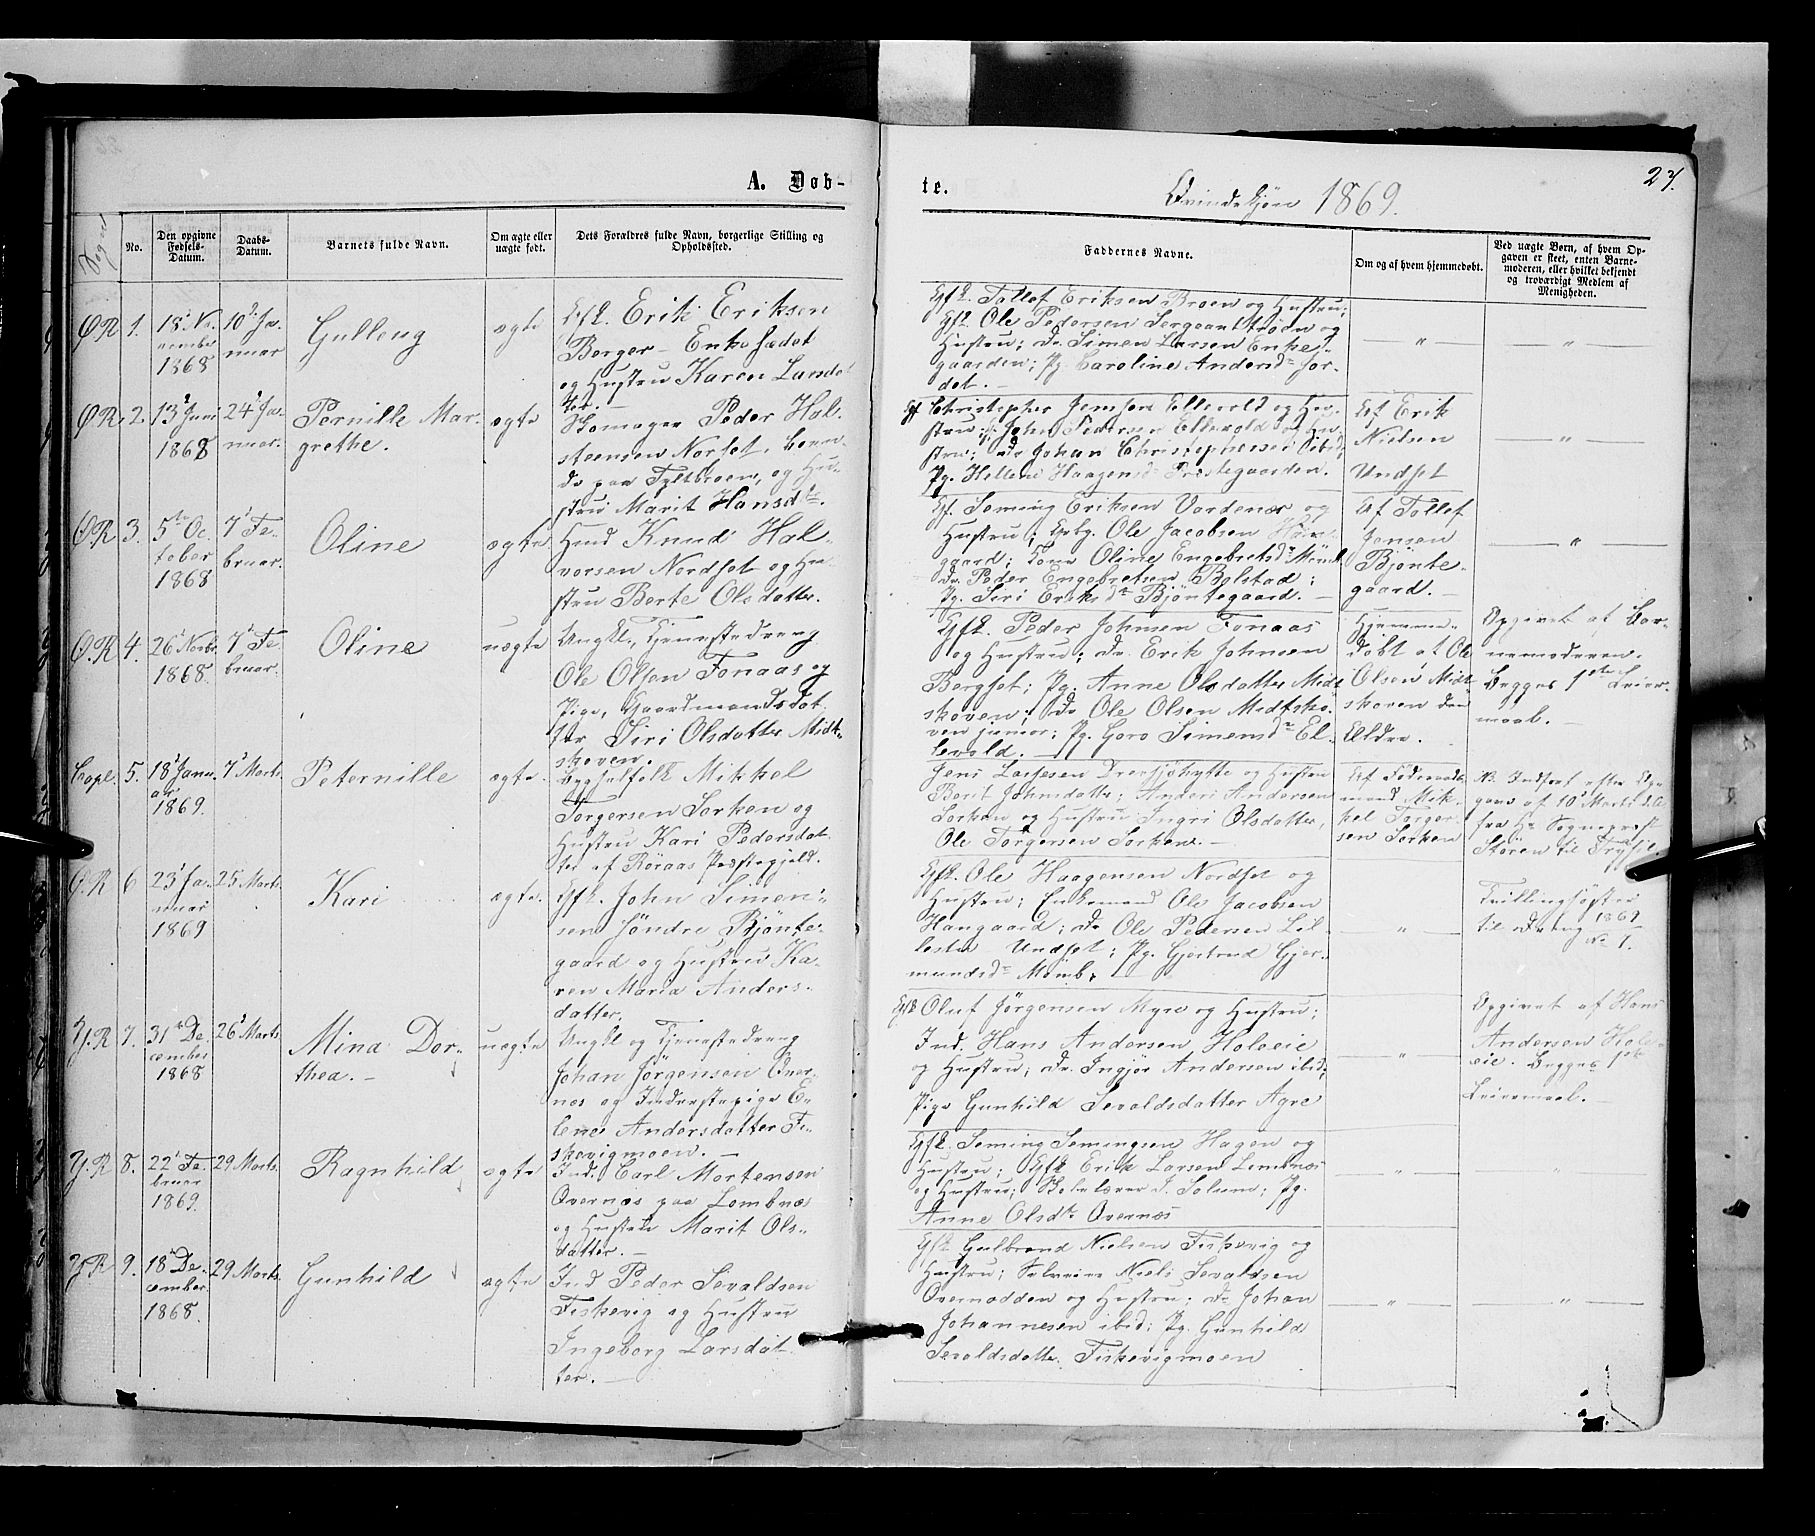 A. Døb-
te.
Qvindekjøn 1869.
27.
Sogn
No.
Den opgivne Fødsels-Datum.
Daabs-Datum.
Barnets fulde Navn.
Om ægte eller uægte født.
Dets Forældres fulde Navn, borgerlige Stilling og Opholdssted.
Faddernes Navne.
Om og af hvem hjemmedøbt.
Ved uægte Børn, af hvem Opgaven er skeet, enten Barnemoderen, eller hvilket bekjendt og troværdigt Medlem af Menigheden.
ØR 1.
18de No-
vember
1868
10de Ja-
nuar
Gulleug
ægte
Gfk. Erik Eriksen
Berger - Enkesædet
og Hustru Karen Lands-
Gfk. Tollef Eriksen Broen og Hustru;
Gfk. Ole Pedersen Sergeanttrøen og
Hustru; Dr. Simen Larsen Enke-
gaarden; Pg. Caroline Andersdr. Jor-
det. -
— " —
— " —
ØR 2.
13de Juni
1868
24de Ja-
nuar.
Pernille Mar-
grethe.
ægte
Skomager Peder Hal-
steensen Nordset, boen-
de paa Fyltbroen, og Hu-
stru Marit Hansdtr.
Gf Christopher Jensen Ellevold og Hu-
stru; John Pedersen Ellevold og Hu-
stru; Dr Johan Christophersen ibid;
Pg. Hellene Haagensdr Præstegaarden.
Af Erik
Nielsen
Undset
— " —
ØR 3.
5te Oc
tober
1868
7de Fe-
bruar.
Oline
ægte
Hmd Knud Hal-
vorsen Nordset og Hu-
stru Berte Olsdatter.
Gf. Seming Eriksen Vardenær og
Hustru; Ole Jacobsen Haan-
gaard; Kone Oline Engebretsdr
Dr. Peder Engebretsen Bolstad;
Pg. Siri Eriksdr Bjøntegaard. -
Af Tollef
Jensen
Bjønte-
gaard. -
— " —
ØR 4.
26de Novbr.
1868.
7de Fe-
bruar.
Oline
uægte
Ungkl., Tjenestedreng
Ole Olsen Fonaas og
Pige, Gaardmandsdat-
ter Siri Olsdatter Midt-
skoven.
Gfk. Peder Johnsen Fonaas
og Hustru; Dr. Erik Johnsen
Bergset; Pg. Anne Olsdatter Midt-
skoven; Dr Ole Olsen Midtsko-
ven junior; Pg. Goro Simensdr El-
levold. -
Hjemme-
døbt af Ole
Olsen Midt-
skoven den
Ældre.
Opgivet af Bar-
nemoderen.
Begges 1ste Leier-
maal. -
Capl. 5.
18de Janu-
ar
1869.
7de Marts
Peternille
ægte.
Bygselfolk Mikkel
Torgersen Sorken og
Hustru Kari Pedersdat-
ter af Røraas Præstegjeld.
Jens Larsen Drevsjøhytte og Hustru
Berit Johnsdatter; Anders Andersen
Sorken og Hustru Ingri Olsdatter,
Ole Torgersen Sorken. -
Af Føderaads-
mand Mik-
kel Torger-
sen Sorken
No. Indført efter Op-
gave af 10 Marts d.A.
fra Hr Sognepræst
Støren til Trysil.
Ø.R 6
23de Ja-
nuar
1869
25 Marts.
Kari
ægte.
Gfk. John Simen-
sen søndre Bjønte-
gaard og Hustru Ka-
ren Maria Anders-
datter.
Gfk. Ole Haagensen Nordset og
Hustru; Enkemand Ole Jacobsen
Haangaard; Dr Ole Pedersen Lil-
lesta Undset; Pg. Gjertrud Gjer-
mundsdr
— " —
Tvillingsøster
til Dreng 1869
No 1.
Y.R 7.
31te De-
cember
1868
26de Marts.
Mina Dor-
thea. -
uægte
Ungkl og Tjenestedreng
Johan Jørgensen Over-
næs og Inderstepige E-
lene Andersdatter Fi-
skevigmoen. -
Gfk Oluf Jørgensen Myre og Hustru;
Ind. Hans Andersen Holoeie
og Hustru; Dr. Ingjør Andersen ibid;
Pige Gunhild Sevaldsdatter Agre
— " —
Opgivet af Hans
Andersen Holo-
eie. Begges 1ste
Leiermaal. -
Y.R 8.
22de Fe-
bruar
1869.
29 Marts.
Ragnhild
ægte
Ind. Carl Mortensen
Overnæs paa Lombnæs
og Hustru Marit Ols-
datter. -
Gfk. Seming Semingsen Hagen og
Hustru; Gfk Erik Larsen Lombnæs
og Hustru; Skolelærer J. Solum; Pg.
Anne Olsdtr Overnæs
— " —
"
Y.R 9.
18de De-
cember
1868
29 Marts.
Gunhild
ægte
Ind Peder Sevaldsen
Fiskevig og Hustru
Ingeborg Larsdat-
ter. -
Gfk Gulbrand Nielsen Fiskevig og
Hustru; Selveier Niels Sevaldsen
Overnodden og Hustru; Dr. Johan
Johannesen ibid; Pg. Gunhild
Sevaldsdatter Fiskevigmoen
— " —
— " —